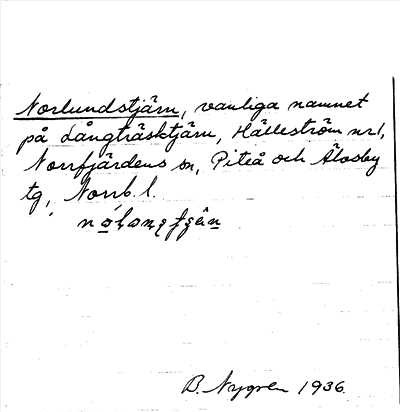 Norlundstjärn, vanliga namnet
på Långträsktjärn, Hälleström nr 1,
Norrfjärdens sn, Piteå och Älvsby
tg, Norrb. l.
B. Nygren 1936.